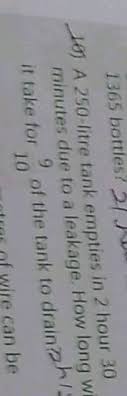 1365 bottles?
10) A 250-litre tank empties in 2 hour 30
minutes due to a leakage. How long
it take for 9/10 of the tank to drain 2h
of wire can be